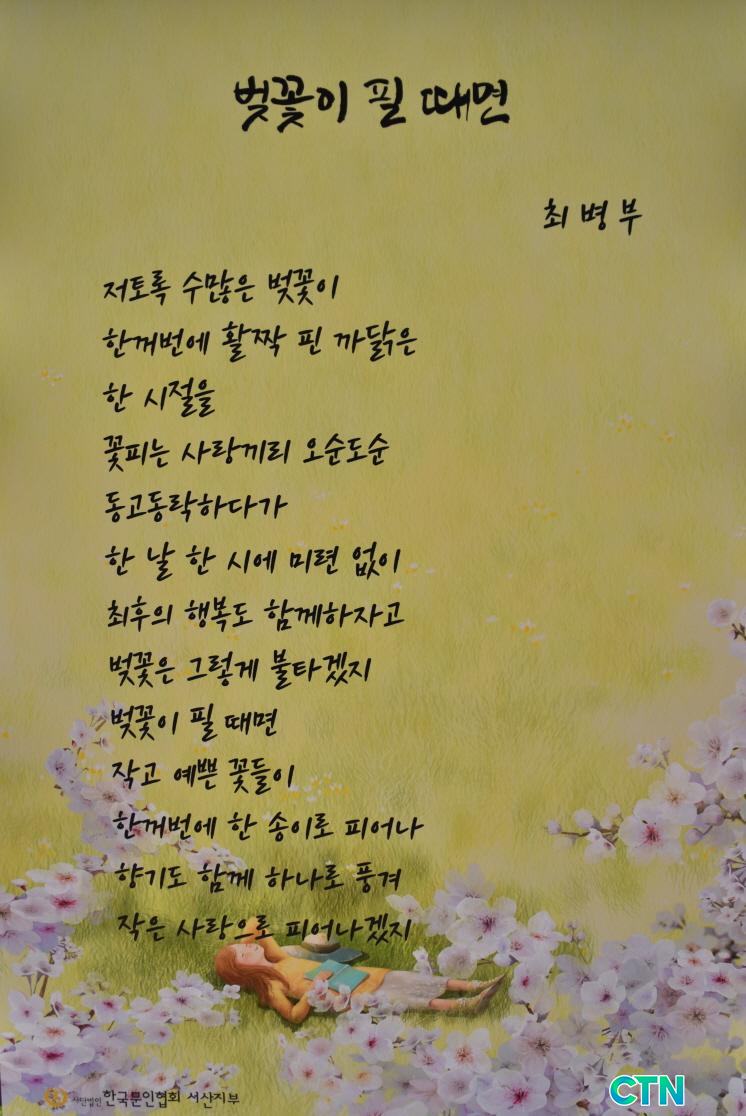 벚꽃이 필 때면
최병부
저토록 수많은 벚꽃이
한꺼번에 활짝 핀 까닭은
한 시절을
꽃피는 사랑끼리 오순도순
동고동락하다가
한 날 한 시에 미련 없이
최후의 행복도 함께하자고
벚꽃은 그렇게 불타겠지
벚꽃이 필 때면
작고 예쁜 꽃들이
한꺼번에 한 송이로 피어나
향기도 함께 하나로 풍겨
작은 사랑으로 피어나겠지
사단법인 한국문인협회 서산지부
CTN